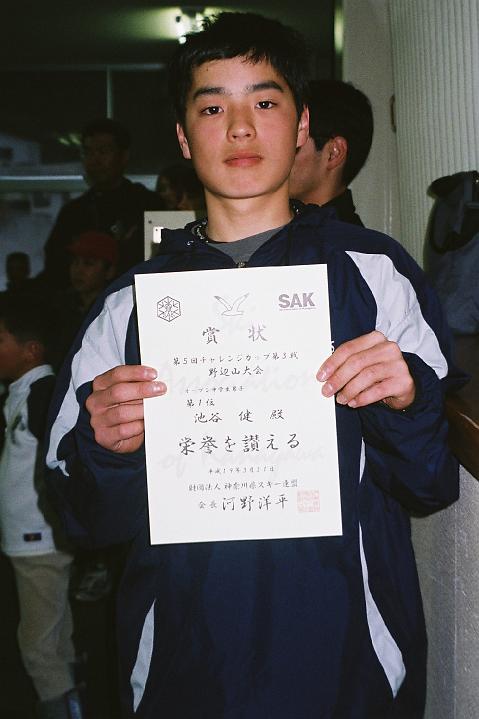 SAK
賞状
第5回チャレンジカップ第3戦
野辺山大会
オープン中学生男子
第1位
池谷 健 殿
栄誉を讃える
平成19年3月21日
財団法人 神奈川県スキー連盟
会長 河野洋平